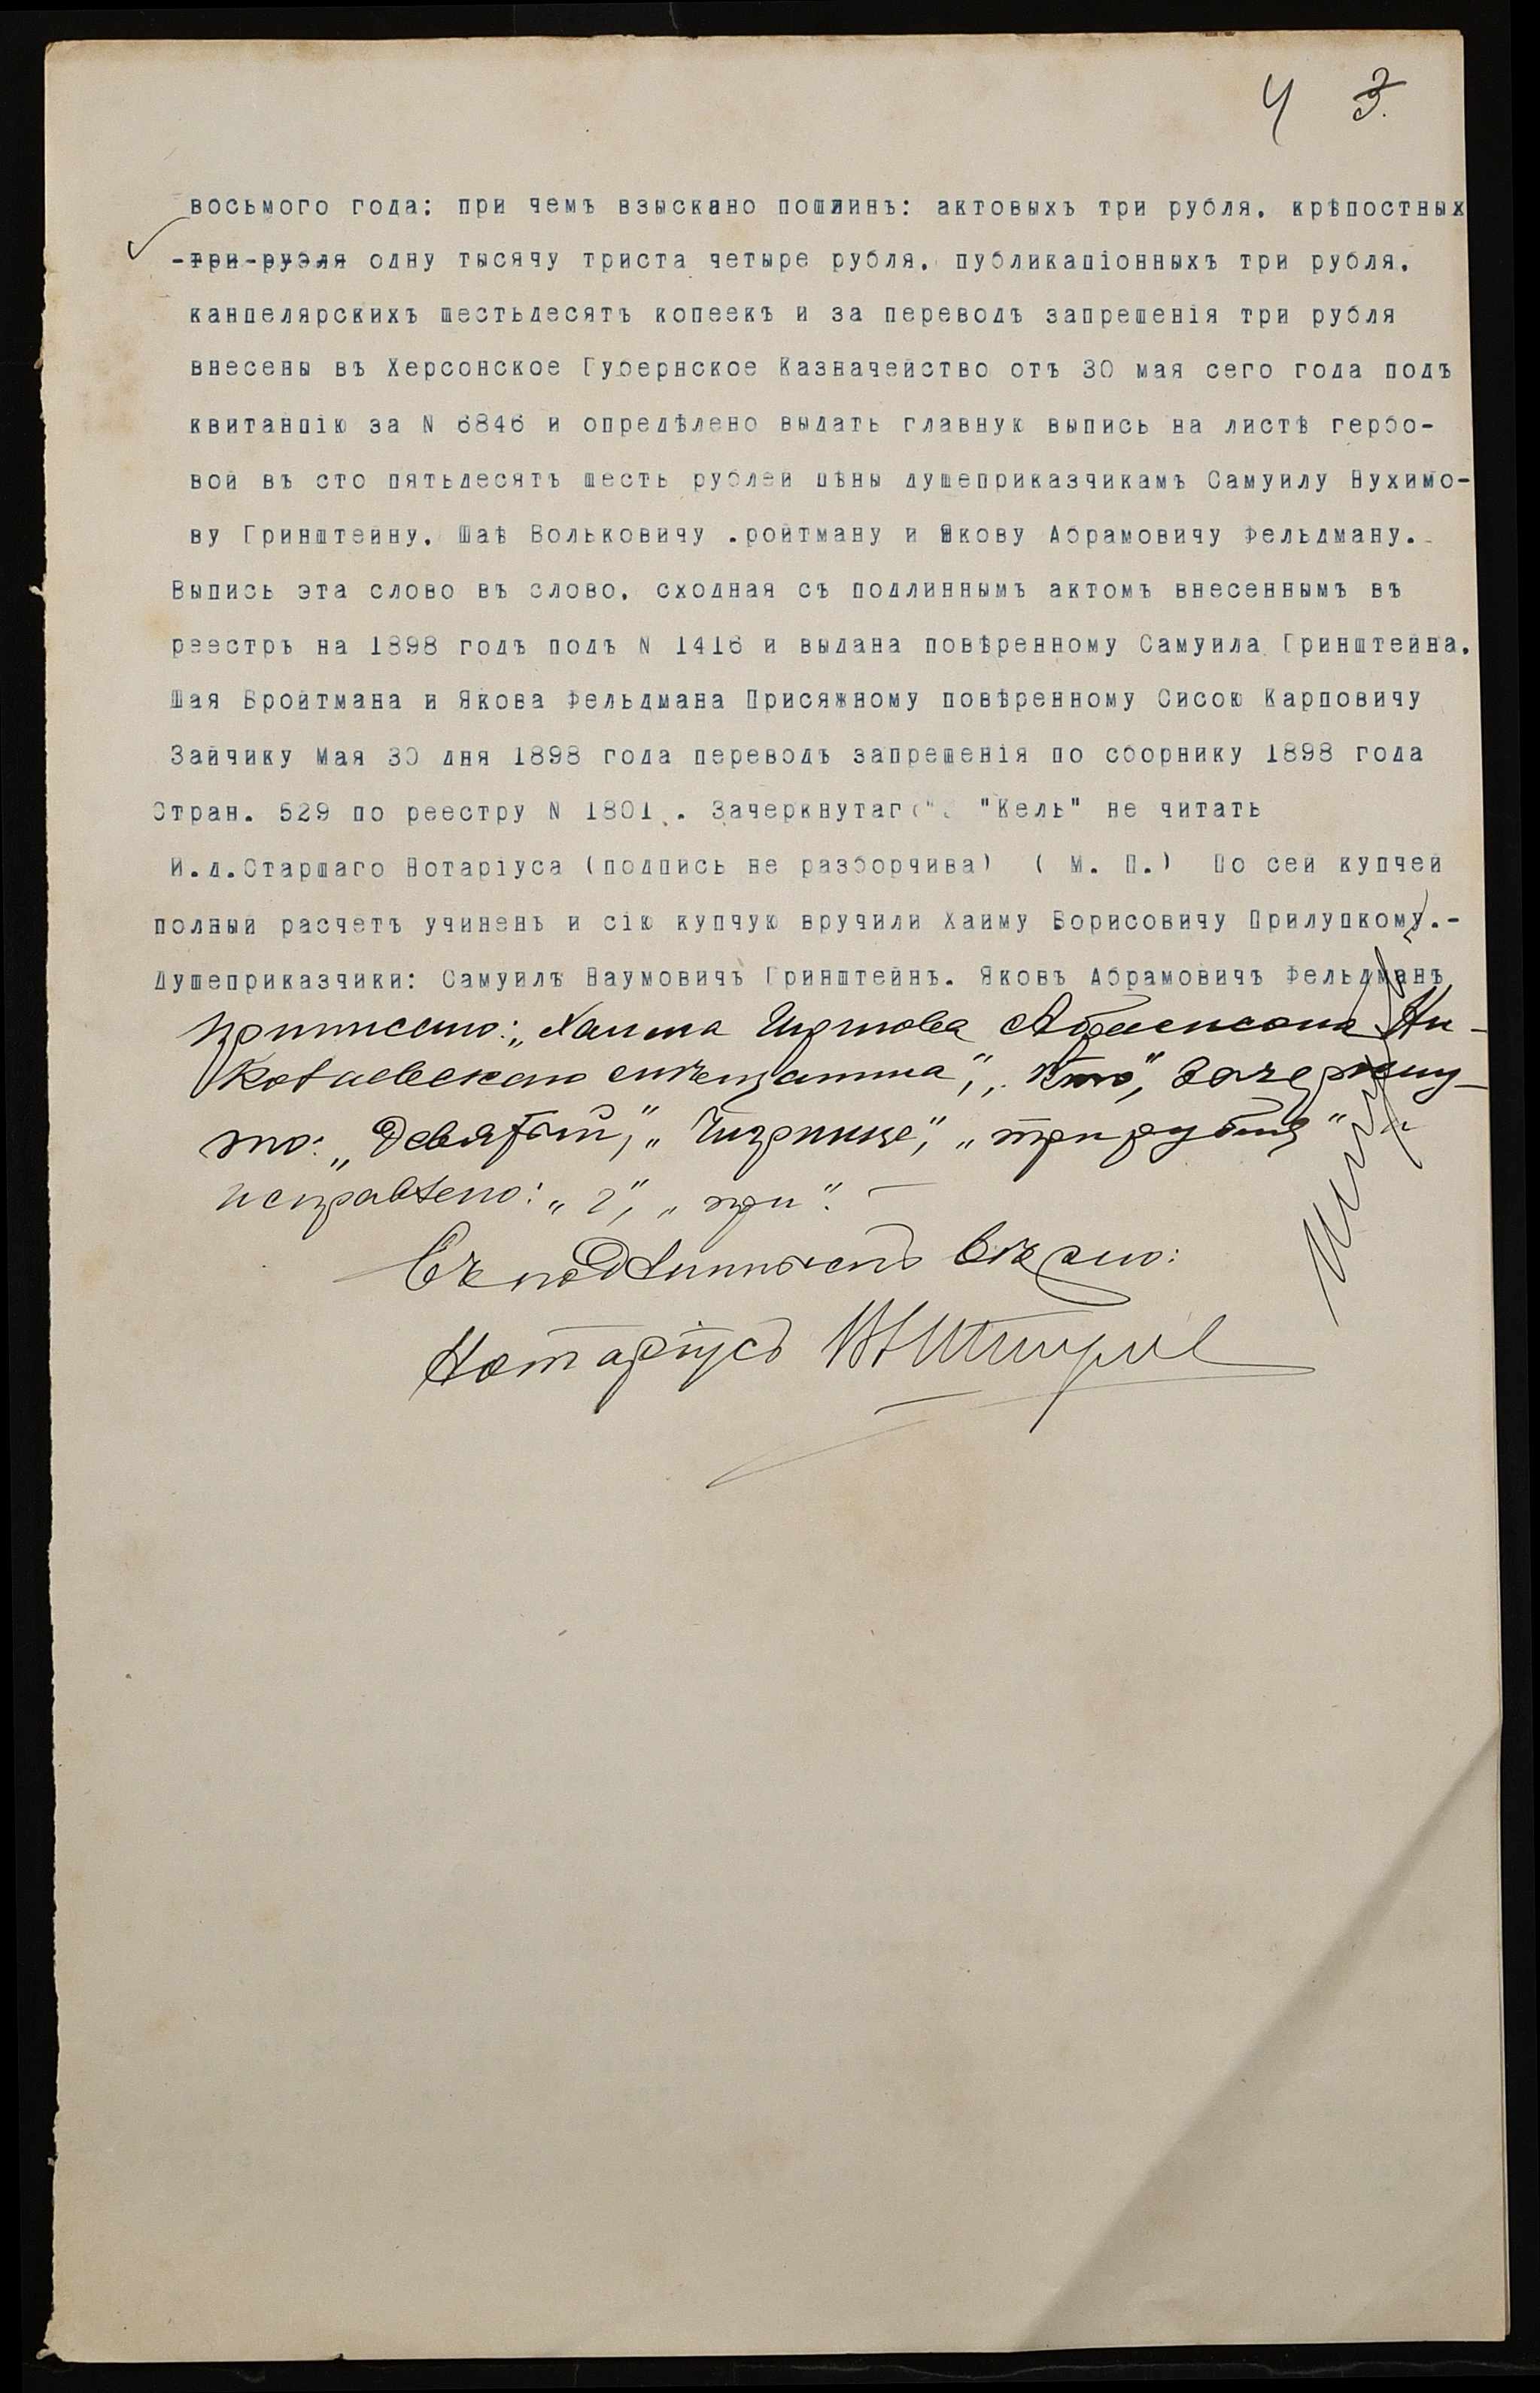 4 3.
восьмого года: при чемъ взыскано пошлинъ: актовыхъ три рубля, крѣпостных
-три-рубля одну тысячу триста четыре рубля, публикаціонныхъ три рубля,
канцелярскихъ шестьдесятъ копеекъ и за переводъ запрещенія три рубля
внесены въ Херсонское Губернское Казначейство отъ 30 мая сего года подъ
квитанцію за N 6846 и опредѣлено выдать главную выпись на листѣ гербо-
вой въ сто пятьдесятъ шесть рублей цѣны душеприказчикамъ Самуилу Нухимо-
ву Гринштейну, Шаѣ Вольковичу .ройтману и Якову Абрамовичу Фельдману.-
Выпись эта слово въ слово, сходная съ подлиннымъ актомъ внесеннымъ въ
реестръ на 1898 годъ подъ N 1416 и выдана повѣренному Самуила Гринштейна,
Шая Бройтмана и Якова Фельдмана Присяжному повѣренному Сисою Карповичу
Зайчику Мая 30 дня 1898 года переводъ запрещенія по сборнику 1898 года
Стран. 529 по реестру N 1801 . Зачеркнутаго "Кель" не читать
И.д.Старшаго Нотаріуса (подпись не разборчива) ( М. П.) По сей купчей
полный расчетъ учиненъ и сію купчую вручили Хаиму Борисовичу Прилуцкому.-
Душеприказчики: Самуилъ Наумовичъ Гринштейнъ. Яковъ Абрамовичъ Фельдманъ
Приписано: „Хаима Абрамсона Ни-
колаевскаго мѣщанина", зачеркну-
то: „девятый", „три рубля"
исправлено: „г", „при". —
Съ подлиннымъ вѣрно:
Нотаріусъ